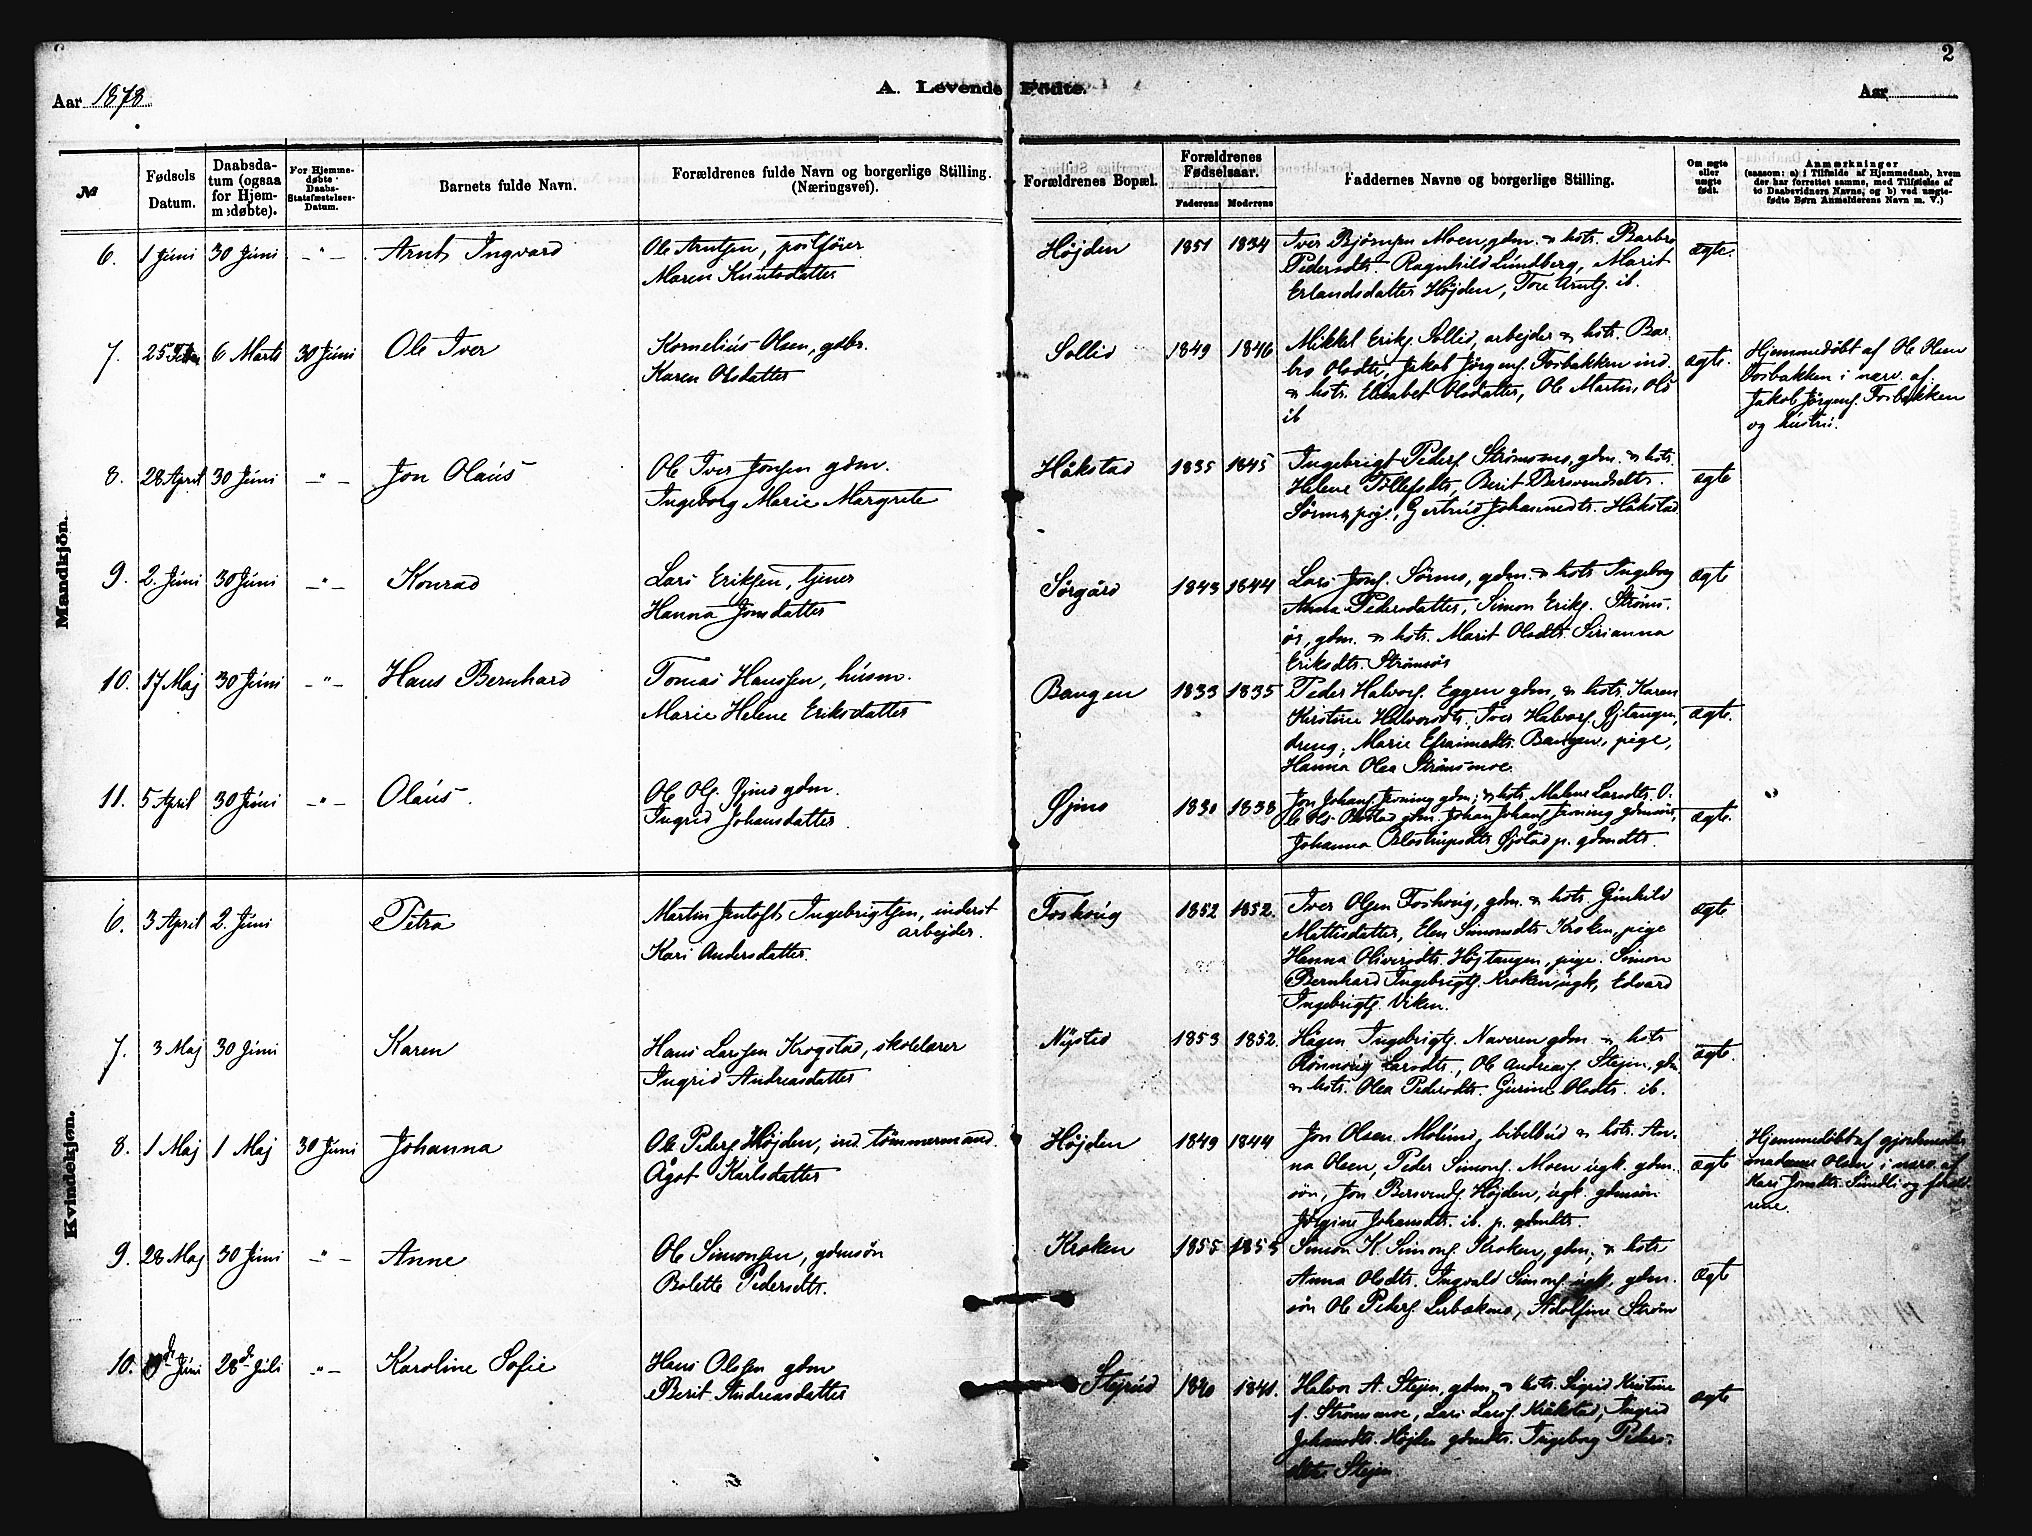 2
Aar 1878
A. Levende Fødte.
Aar
№
Fødsels Datum.
Daabsdatum (ogsaa for Hjemmedøbte).
For Hjemmedøbte Daabs-Stadfæstelses-Datum.
Barnets fulde Navn.
Forældrenes fulde Navn og borgerlige Stilling. (Næringsvei).
Forældrenes Bopæl.
Forældrenes Fødselsaar.
Faderens
Moderens
Faddernes Navne og borgerlige Stilling.
Om ægte eller uægte født.
Anmærkninger
(saasom: a) i Tilfælde af Hjemmedaab, hvem der har forrettet samme, med Tilføielse af to Daabsvidners Navne, og b) ved uægtefødte Børn Anmelderens Navn m. V.)
Mandkjön.
6. 1 Juni 30 Juni -"- Arnt Ingvard
Ole Arntsen, postfører
Maren Knutsdatter
Højden 1851 1834
Iver Bjørnsen Moen, gdm. & hstr. Barbro
Pedersdtr. Ragnhild Lundberg, Marit
Erlandsdatter Højden, Tore Arntz. ib.
ægte.
7. 25 Febr 6 Marts 30 Juni Ole Iver
Kornelius Olsen, gdbr.
Karen Olsdatter
Sollid 1849 1846
Mikkel Eriks. Sollid, arbejder & hstr. Bar-
bro Olsdtr, Jakob Jörgens. Fosbakken ind.
& hstr. Elisabet Olsdatter, Ole Martin Ols
ib
ægte.
Hjemmedøbt af Ole Olsen
Fosbakken i nærv. af
Jakob Jörgens. Fosbakken
og hustru.
8. 28 April 30 Juni -"- Jon Olaus
Ole Iver Jonsen gdm.
Ingeborg Marie Margrete
Håkstad 1835 1845
Ingebrigt Peders. Strömsmo, gdm. & hstr.
Helene Tollefsdtr, Berit Bersvendsdtr.
Sörmo, pige, Gertrud Johannesdtr. Håkstad
ægte
9. 2. Juni 30 Juni -"- Konrad
Lars Eriksen, tjener
Hanna Jonsdatter
Sørgård 1843 1844
Lars Jons. Sörmo, gdm. & hstr Ingeborg
Anna Pedersdatter, Simon Eriks. Ströms-
ör, gdm. & hstr. Marit Olsdtr. Serianna
Eriksdtr. Strömsör
ægte
10. 17 Maj 30 Juni -"- Hans Bernhard
Tomas Hanssen, husm.
Marie Helene Eriksdatter
Bangen 1833 1835
Peder Halvors. Eggen gdm, & hstr. Karen
Kirstine Halvorsdtr. Iver Halvors. Øjtangen,
dreng, Marie Efraimsdtr. Bangen, pige,
Hanna Olea Strömsmoe.
ægte.
11. 5 April 30 Juni -"- Olaus.
Ole Ols. Øjmo gdm.
Ingrid Johansdatter
Øjmo 1830 1838
Jon Johans. gdm; & hstr. Malene Larsdtr. O-
Johanna Øjstad p. gdmdtr.
ægte.
"
Kvindekjøn.
6. 3 April 2. Juni Petra
Martin Jentoft Ingebrigtsen, inderst
arbejder.
Kari Andersdatter.
Foshaug 1852 1852.
Iver Olsen Foshaug, gdm. & hstr. Gunhild
Mattisdatter, Elen Simonsdtr Kroken, pige
Hanna Oliversdtr. Højtangen, pige. Simon
Bernhard Ingebrigts. Kroken, ugk, Edvard
Ingebrigts. Viken.
ægte
7. 3 Maj 30 Juni Karen
Hans Larssen Krogstad, skolelærer
Ingrid Andreasdatter
Nysted 1853 1852.
Hågen Ingebrigts. Naveren gdm. & hstr
Rönnaug Larsdtr., Ole Andreas. Stejen, gdm
& hstr. Olea Pedersdtr. Gurine Olsdtr. ib.
ægte.
8. 1 Maj 1 Maj 30 Juni Johanna
Ole Peders Højden, ind. tömmermand.
Ågot Karlsdatter
Højden 1849 1844
Jon Olsen Molund, bibelbud & hstr. An-
na Olsen, Peder Simons. Moen ugk. gdm.
sön, Jon Bersvends. Højden, ugk. gdmsön
Jörgine Johansdtr. ib. p. gdmdtr.
ægte
Hjemmedøbt af gjordemoder
madame Olsen i nærv. af
Kari Jonsdtr. Sundli og foræld-
rene.
9. 28 Maj 30 Juni -"- Anne
Ole Simonsen, gdmsön
Bolette Pedersdtr.
Kroken 1855 1855
Simon K. Simons. Kroken, gdm; & hstr
Anna Olsdtr. Ingvald Simons. ugk. gdm.
sön Ole Peders. Lerbakmo, Adolfine Ström
ægte
10. 19de Juni 28de Juli -"- Karoline Sofie
Hans Olssen gdm
Berit Andreasdatter
Stejrud 1840 1841.
Halvor A. Stejen, gdm. & hstr. Sigrid Kristine
f. Strömsmoe, Lars Lars. Kråkstad, Ingrid
Johansdtr. Højden gdmdtr. Ingeborg Peders-
dtr. Stejen
ægte